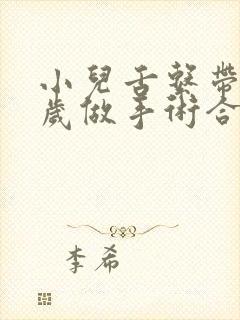 小兒舌繫帶
歲做手術合
李希